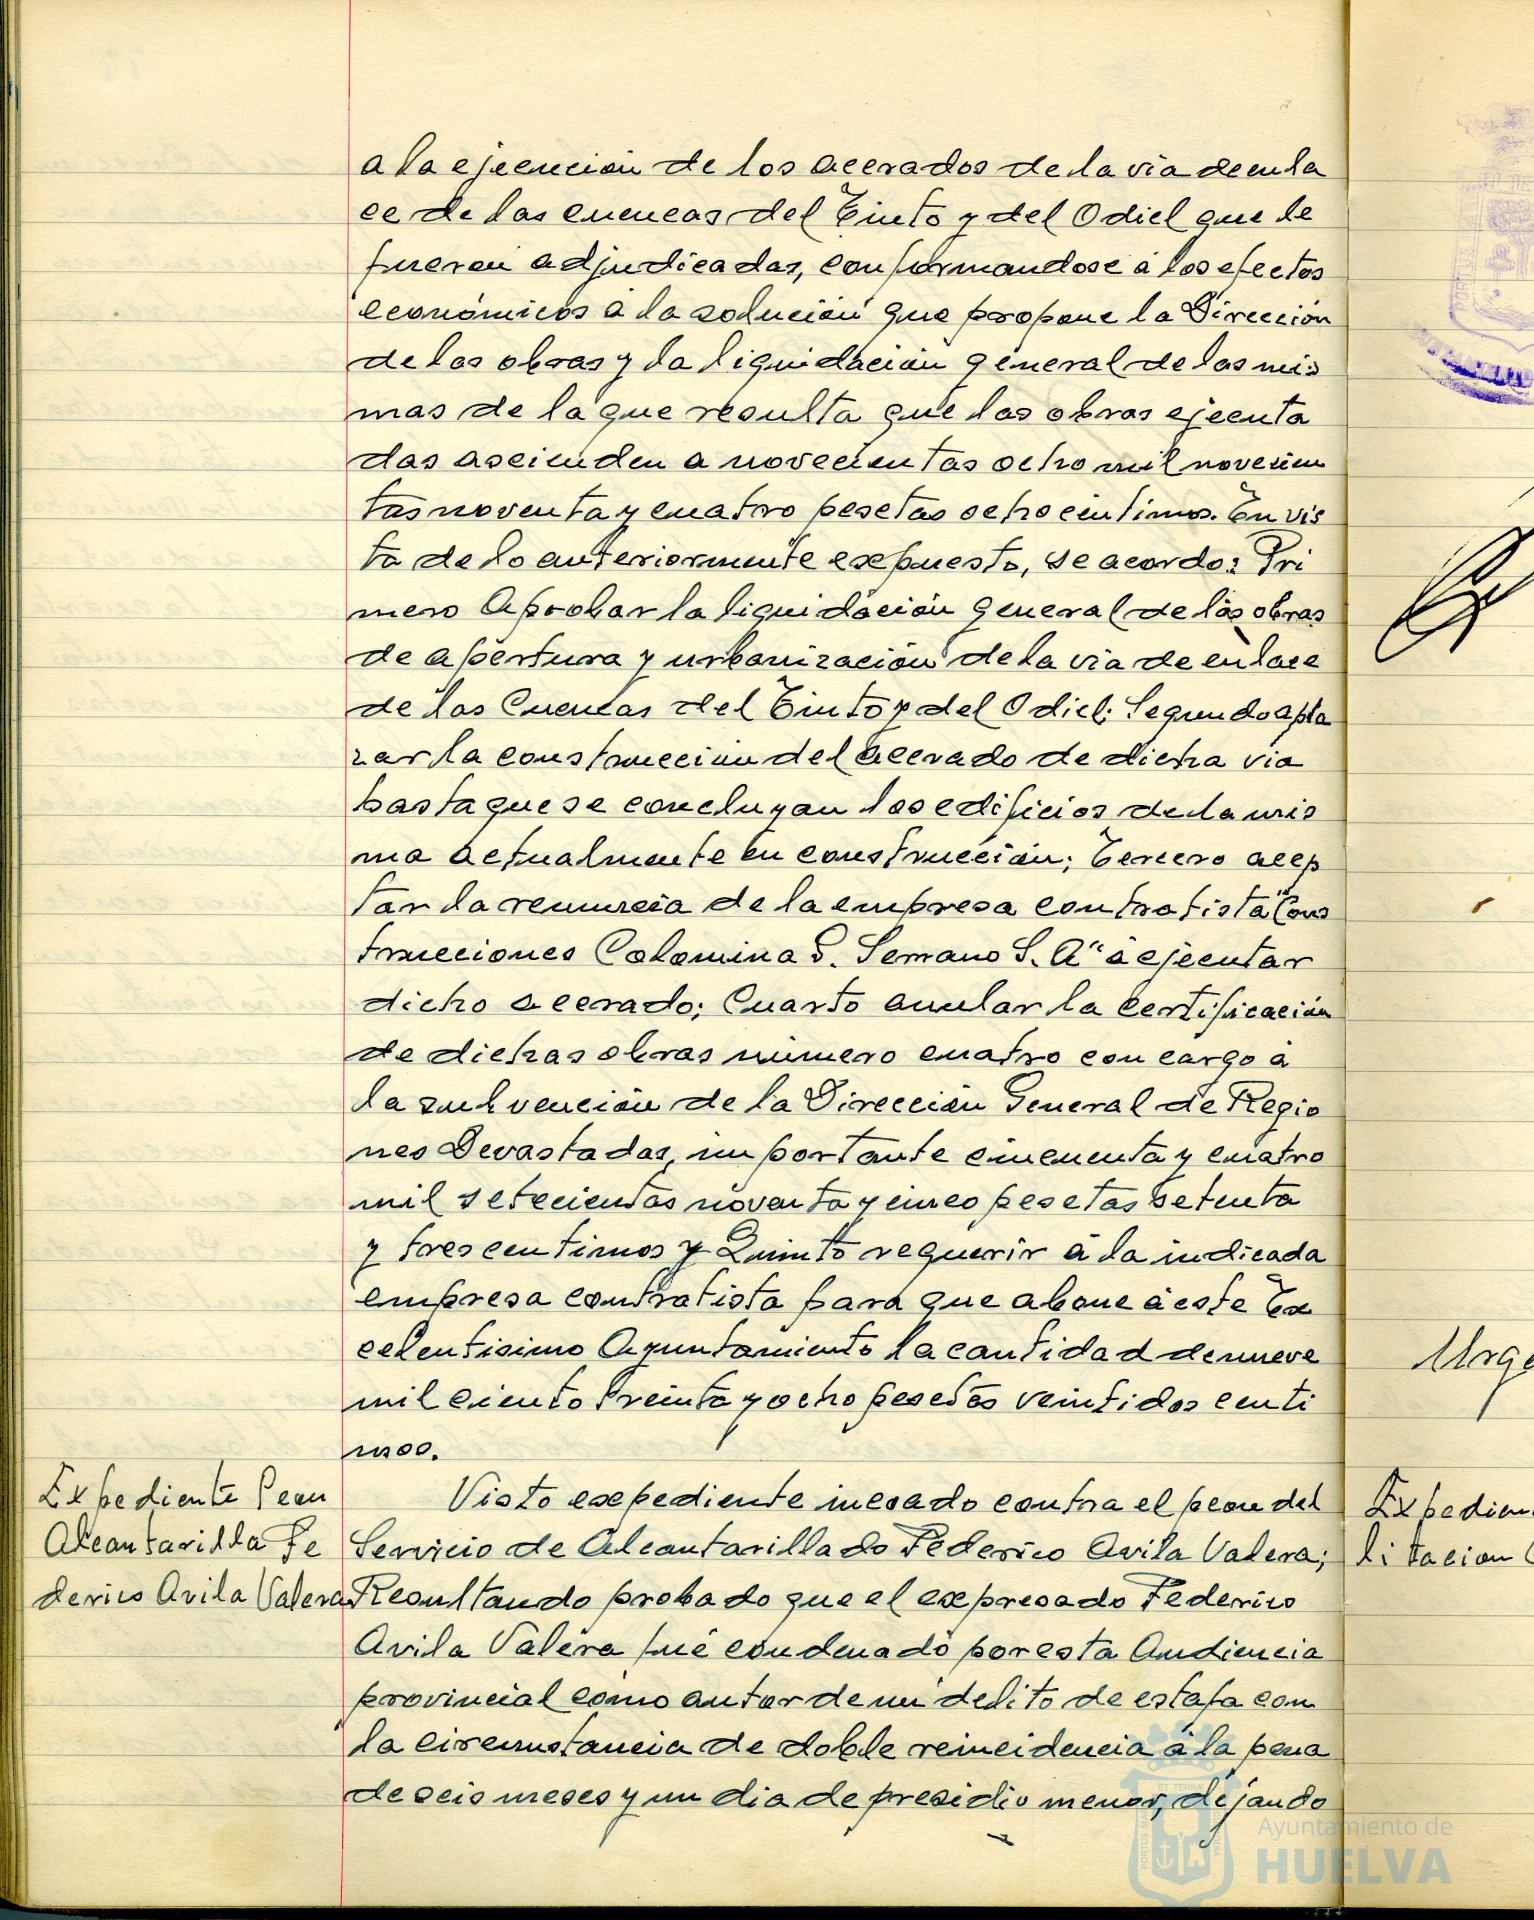 a la ejecución de los acerados de la via de enla
ce de las cuencas del Tinto y del Odiel que le
fueron adjudicadas, conformandose á los efectos
económicos a la solución que propone la Dirección
de las obras y la liquidación general de las mis
mas de la que resulta que las obras ejecuta
das ascienden a novecientas ocho mil novecien
tas noventa y cuatro pesetas ocho centimos. En vis
ta de lo anteriormente expuesto, se acordo: Pri
mero Aprobar la liquidación general de las obras
de apertura y urbanización de la via de enlace
de las Cuencas del Tinto y del Odiel: Segundo apla
zar la construccion del acerado de dicha via
hasta que se concluyan los edificios de la mis
ma actualmente en construcción; Tercero acep
tar la renuncia de la empresa contratista "Cons
trucciones Colomina G. Serrano S. A" á ejecutar
dicho acerado; Cuarto anular la certificación
de dichas obras número cuatro con cargo á
la subvención de la Dirección General de Regio
nes Devastadas, importante cincuenta y cuatro
mil setecientas noventa y cinco pesetas setenta
y tres centimos y Quinto requerir á la indicada
empresa contratista para que abone á este Ex
celentisimo Ayuntamiento la cantidad de nueve
mil ciento treinta y ocho pesetas veintidos centi
mos.
Expediente Peon
Alcantarilla Fe
derico Avila Valera
Visto expediente incoado contra el peon del
Servicio de Alcantarillado Federico Avila Valera;
Resultando probado que el expresado Federico
Avila Valera fué condenado por esta Audiencia
provincial como autor de un delito de estafa con
la circunstancia de doble reincidencia á la pena
de seis meses y un dia de presidio menor, dejando
Urge
Expedien
litacion
Ayuntamiento de
HUELVA